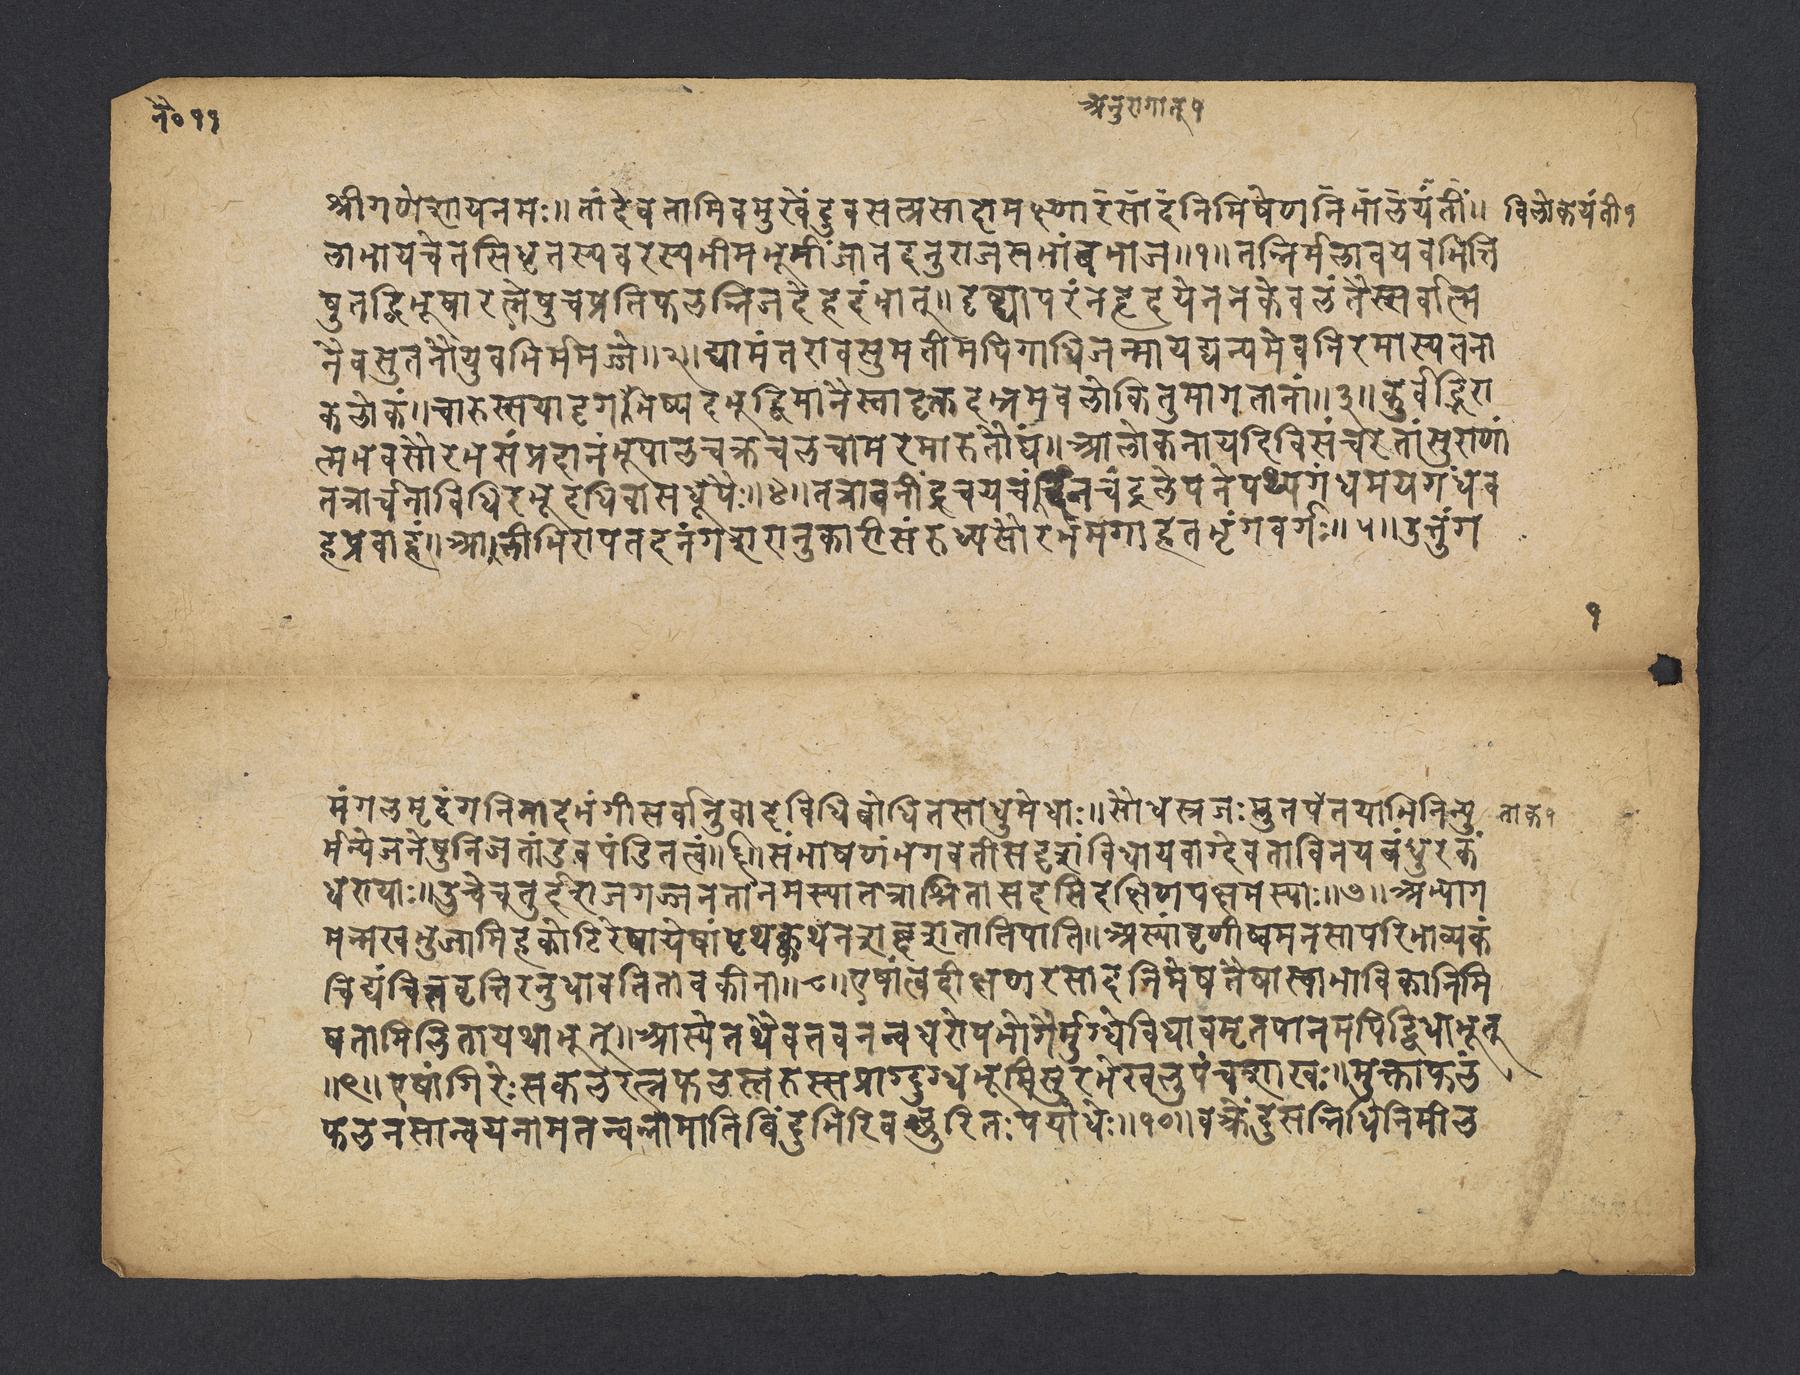 नै० ११
अनुरागात् १
श्रीगणेशायनमः॥ तां देवतामिवमुखेंदुवसत्प्रसादामक्ष्णारसादनिमिषेणनिभालयंतीं॥ विलोकयंती १
लाभायचेतसिधृतस्यवरस्यभीमभूमींद्रजातदनुराजसभांबभाज॥१॥तन्निर्मलावयवभित्ति
षुतद्विभूषारत्नेषुचप्रतिफलन्निजदेहदंभात्॥दृष्ट्यापरंनहृदयेननकेवलंतैस्सर्वात्म
नैवसुतनौयुवभिर्ममज्जे॥२॥द्यामंतरावसुमतीमपिगाधिजन्मायद्यन्यमेवनिरमास्यतना
कलोकं॥चारुस्सयादृगभविष्यदभूद्विमानैस्तादृक्तदभ्रमवलोकितुमागतानां॥३॥कुर्वद्भिरा
त्मभवसौरभसंप्रदानंभूपालचक्रचलचामरमारुतौघं॥आलोकनायदिविसंचरतांसुराणां
तत्रार्चनाविधिरभूदधिवासधूपैः॥४॥तत्रावनींद्रचयचंदनचंद्रलेपनेपथ्यगंधमयगंधव
हप्रवाहं॥आलीभिरापतदनंगशरानुकारीसंरुध्यसौरभमगाहतभृंगवर्गः॥५॥उत्तुंग
१
मंगलमृदंगनिनादभंगीसर्वानुवादविधिबोधितसाधुमेधाः॥सौधस्रजःप्लुतपतयाभिनिन्यु ताक १
र्मन्येजनेषुनिजतांडवपंडितत्वं॥६॥संभाषणंभगवतीसदृशंविधायवाग्देवताविनयबंधुरकं
धरायाः॥ऊचेचतुर्दशजगज्जनतानमस्यातत्राश्रितासदसिदक्षिणपक्षमस्याः॥७॥अभ्याग
मन्मखभुजामिहकोटिरेषायेषांपृथक्कथनेशब्दशतातिपाति॥अस्यांवृणीष्वमनसापरिभाव्यकं
चिद्यंचित्तवृत्तिरनुधावतितावकीना॥८॥एषांत्वदीक्षणरसादनिमेषतैषास्वाभाविकानिमि
षतामिलितायथाभूत्॥आस्येतथैवतवनन्वधरोपभोगैर्मुग्धेविधावमृतपानमपिद्विधाभूत्
॥९॥एषांगिरेःसकलरत्नफलस्तरुस्सप्राग्दुग्धभूमिसुरभेखलुपंचशाखः॥मुक्ताफलं
फलनसान्वयनामतन्वन्नाभातिबिंदुभिरिवच्छुरितःपयोधेः॥१०॥वक्त्रेंदुसन्निधिनिमील